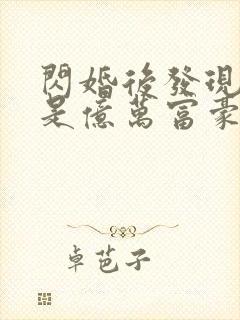 閃婚後發現
是億萬富豪
卓芭子